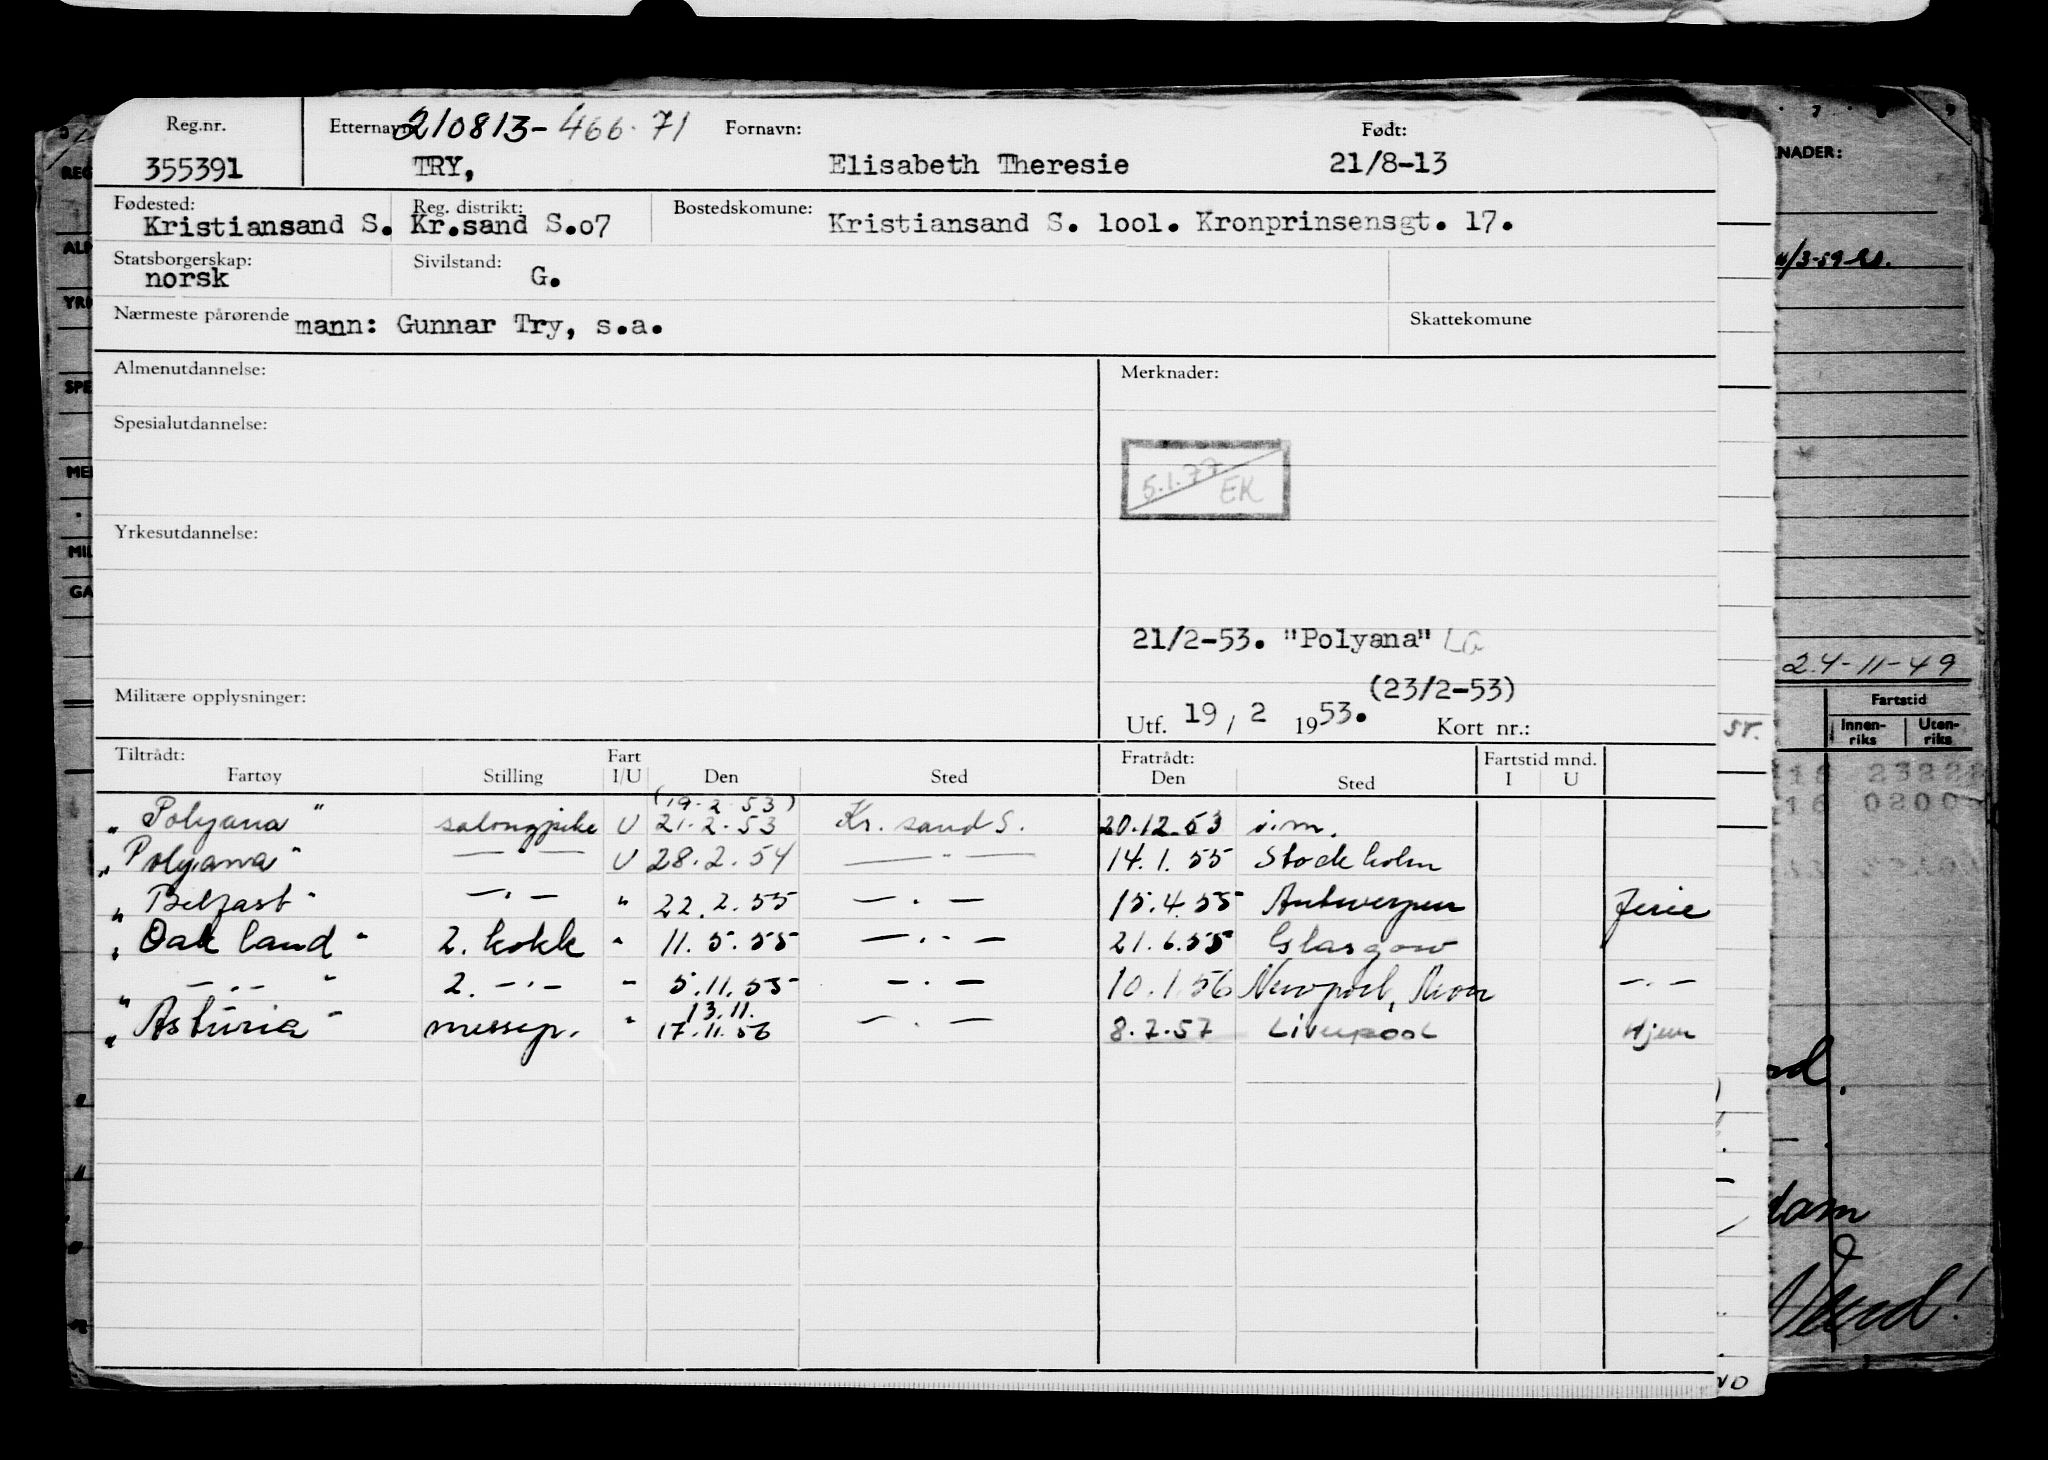 Reg.nr. Etternavn 210813-466.71 Fornavn: Født:
355391 TRY, Elisabeth Theresie 21/8-13
Fødested: Reg. distrikt: Bostedskomune:
Kristiansand S. Kr.sand S.o7 Kristiansand S. 1001. Kronprinsensgt. 17.
Statsborgerskap: Sivilstand:
norsk G.
Nærmeste pårørende mann: Gunnar Try, s.a. Skattekomune
Almenutdannelse: Merknader:
Spesialutdannelse:
5.1.77 EK
Yrkesutdannelse:
21/2-53. "Polyana" LG
Militære opplysninger: (23/2-53)
Utf. 19 / 2 1953. Kort nr.:
Tiltrådt: Fart Fratrådt: Fartstid mnd.
Fartøy Stilling I/U Den Sted Den Sted I U
(19.2.53)
"Polyana" salongpike U 21.2.53 Kr. sand S. 20.12.53 s.m.
"Polyana" —"— U 28.2.54 —"— 14.1.55 Stockholm
"Belfast" —"— " 22.2.55 —"— 15.4.55 Antwerpen ferie
"Oakland" 2. kokk " 11.5.55 —"— 21.6.55 Glasgow
"—"—" 2. —"— " 5.11.55 —"— 10.1.56 Newport, Mon —"—
13.11.
"Asturia" messep. " 17.11.56 —"— 8.7.57 Liverpool Hjem
NADER:
24-11-49
Fartstid
Innen-riks Uten-riks